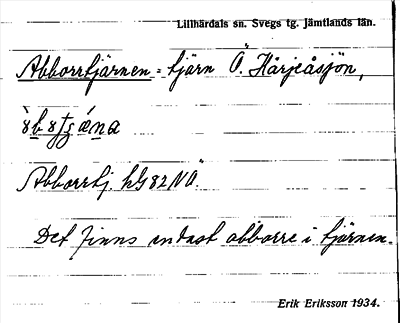 Lillhärdals sn. Svegs tg. Jämtlands län.
Abborrtjärnen = tjärn Ö. Härjeåsjön,
Abborrtj. kG82NÖ.
Det finns endast abborre i tjärnen.
Erik Eriksson 1934.